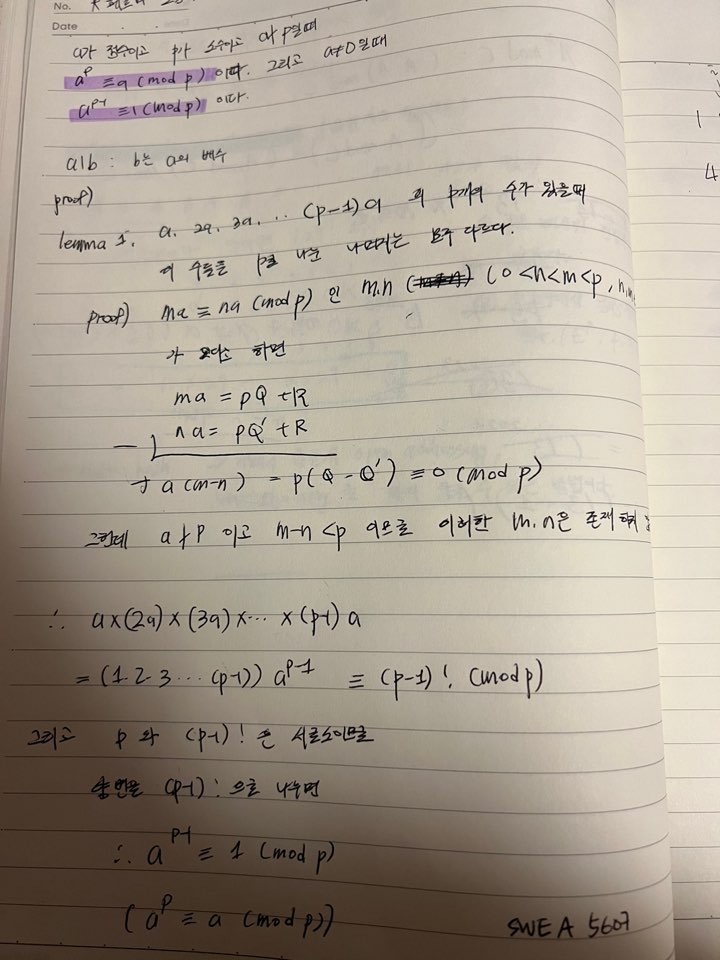 No.
Date
a가 정수이고 p가 소수이고 a∤p일때
a^p ≡ a (mod p) 이다. 그리고 a≠0일때
a^{p-1} ≡ 1 (mod p) 이다.
a|b : b는 a의 배수
proof)
lemma 1. a, 2a, 3a, ... (p-1)a 의 수가 있을때
이 수들을 p로 나눈 나머지는 모두 다르다.
proof) ma ≡ na (mod p) 인 m, n (0<n<m<p, n, m
가 있다 하면
ma = pQ + R
na = pQ' + R
a(m-n) = p(Q - Q') ≡ 0 (mod p)
그런데 a∤p 이고 m-n<p 이므로 이러한 m, n은 존재하지
∴ a×(2a)×(3a)×...×(p-1)a
= (1·2·3 ... (p-1)) a^{p-1} ≡ (p-1)! (mod p)
그리고 p와 (p-1)! 은 서로소이므로
양변을 (p-1)! 으로 나누면
∴ a^{p-1} ≡ 1 (mod p)
(a^p ≡ a (mod p))
SWEA 5607